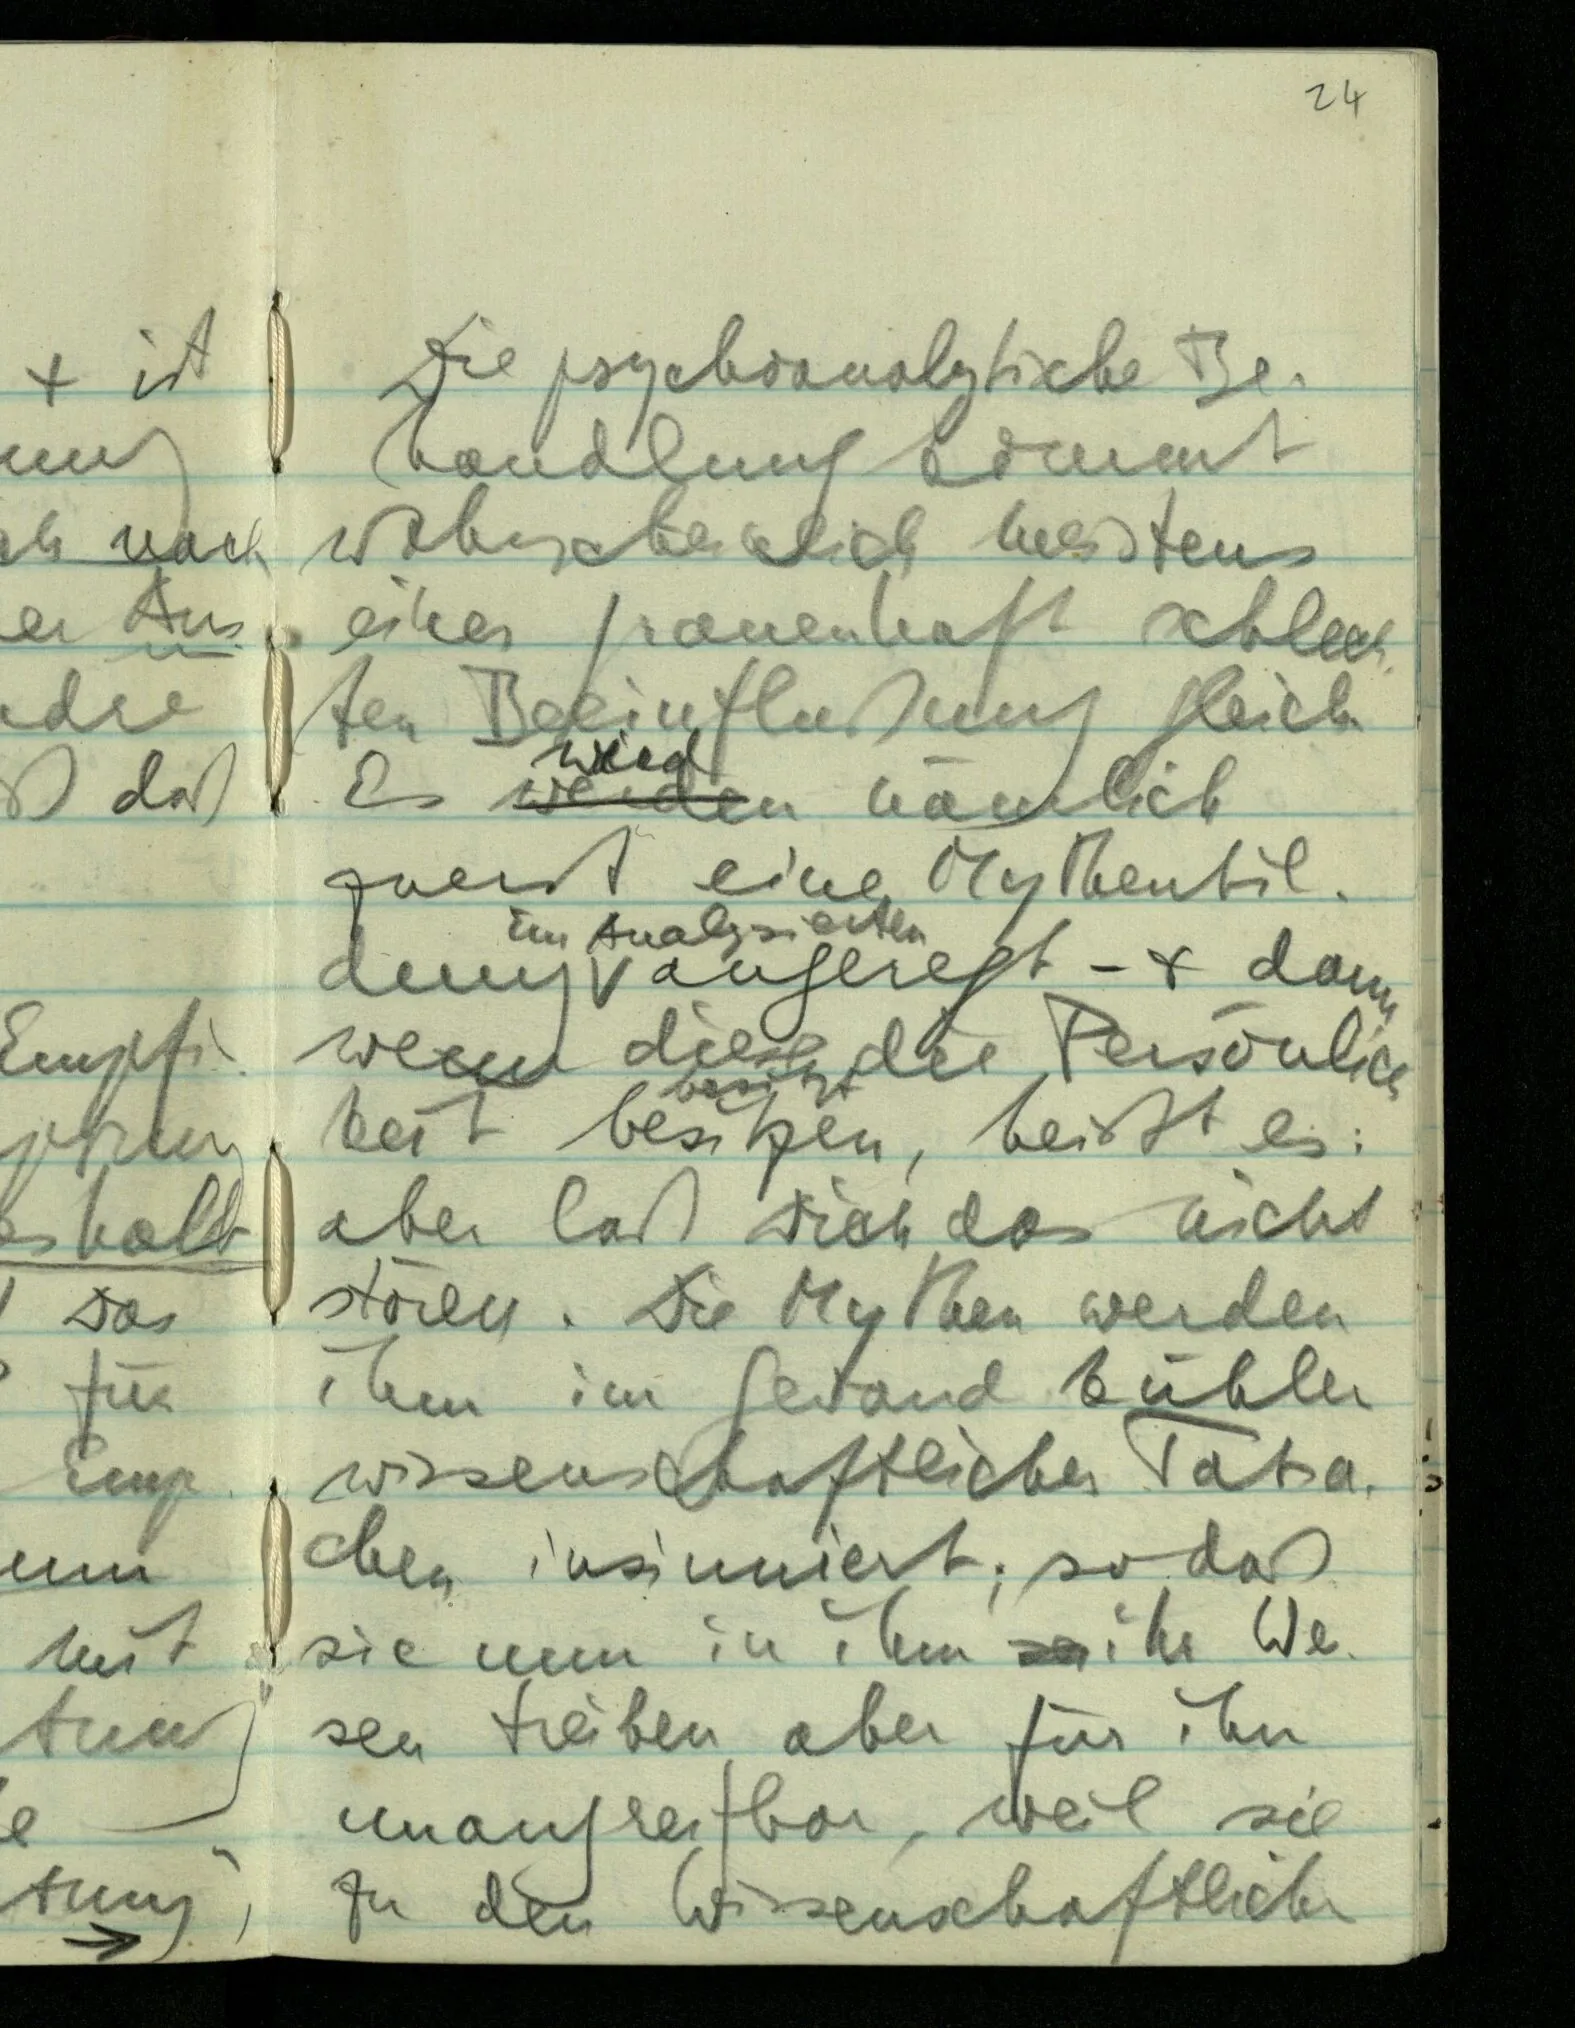 24
+ ist
nach
er Aus
dre
daß
Empfi
eshalb
Das
für
Emp
mit
tung
Die psychoanalytische Be-
handlung kommt
wahrscheinlich meistens
einer grauenhaft schlech-
ten Beeinflußung gleich
wird
Es werden nämlich
zuerst eine Mythenbil-
im Analysierten
dung angeregt – + dann
wenn diese die Persönlich
besitzt
keit besitzen, heißt es:
aber laß Dich das nicht
stören. Die Mythen werden
ihm im Gewand kühler
wissenschaftlicher Tatsa-
chen insinuiert; so daß
sie nun in ihm ihr We-
sen treiben aber für ihn
unangreifbar, weil sie
zu den Wissenschaftlich